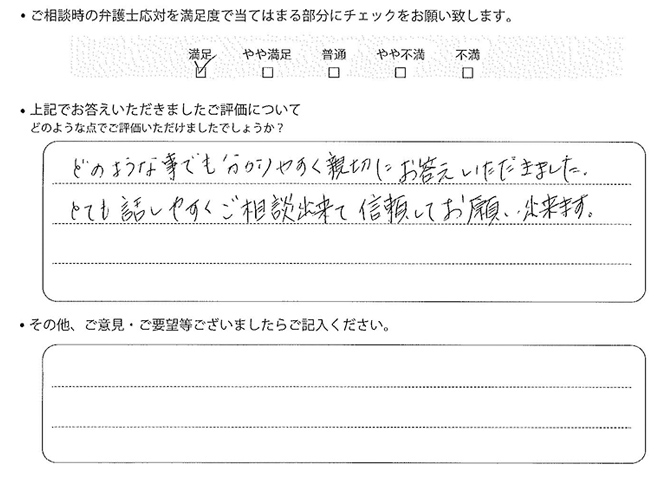 • ご相談時の弁護士応対を満足度で当てはまる部分にチェックをお願い致します。
満足 やや満足 普通 やや不満 不満
☑ □ □ □ □
• 上記でお答えいただきましたご評価について
どのような点でご評価いただけましたでしょうか？
どのような事でも分かりやすく親切にお答えいただきました.
とても話しやすくご相談出来て信頼してお願い出来ます。
• その他、ご意見・ご要望等ございましたらご記入ください。